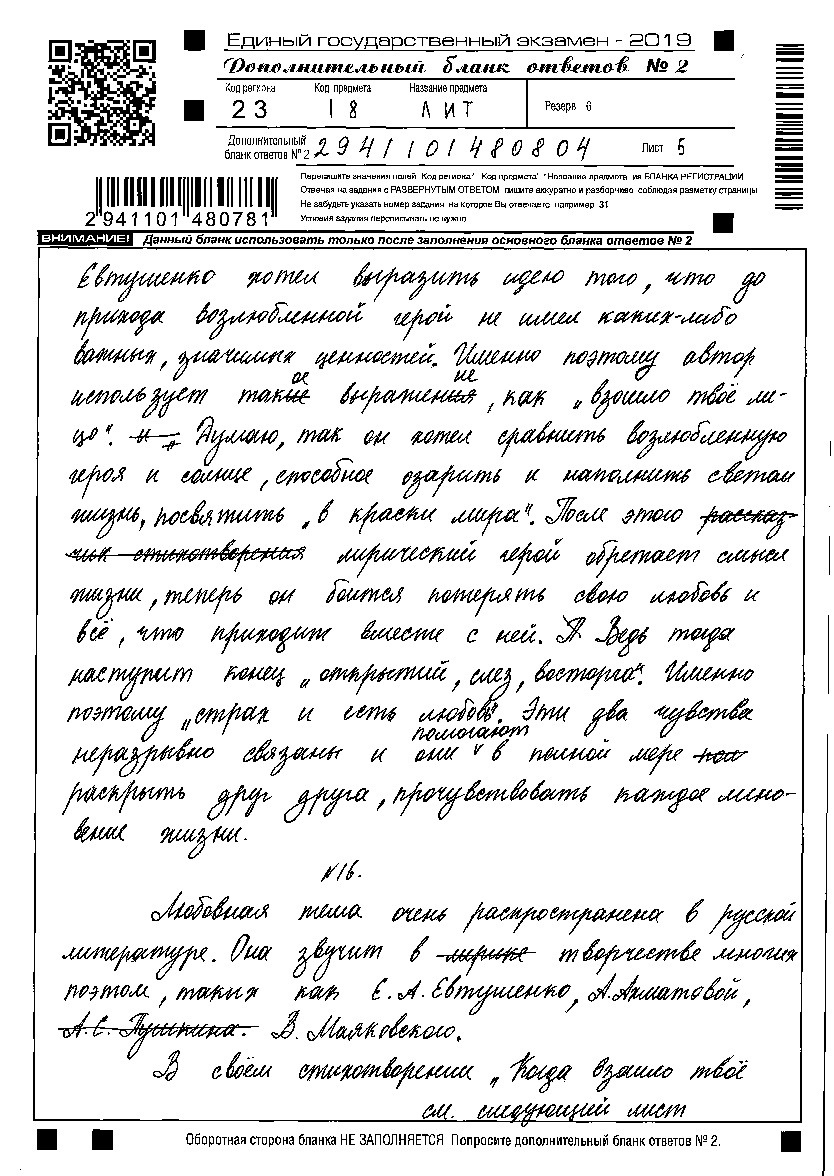 Единый государственный экзамен - 2019
Дополнительный бланк ответов № 2
Код региона Код предмета Название предмета
23 18 ЛИТ Резерв 6
Дополнительный бланк ответов № 2 2941101480804 Лист 5
Перепишите значения полей "Код региона" "Код предмета" "Название предмета" из БЛАНКА РЕГИСТРАЦИИ
Отвечая на задания с РАЗВЕРНУТЫМ ОТВЕТОМ пишите аккуратно и разборчиво соблюдая разметку страницы
Не забудьте указать номер задания на которое Вы отвечаете например 31
Условия задания переписывать не нужно
2 941101 480781
ВНИМАНИЕ! Данный бланк использовать только после заполнения основного бланка ответов № 2
Евтушенко хотел выразить идею того, что до
прихода возлюбленной герой не имел каких-либо
важных, значимых ценностей. Именно поэтому автор
использует такое выражение, как „взошло твоё ли-
цо“. Думаю, так он хотел сравнить возлюбленную
героя и солнце, способное озарить и наполнить светом
жизнь, посвятить „в краски мира“. После этого рассказ-
чик стихотворения лирический герой обретает смысл
жизни, теперь он боится потерять свою любовь и
всё, что приходит вместе с ней. Ведь тогда
наступит конец „открытий, слез, восторга“. Именно
поэтому „страх и есть любовь“. Эти два чувства
неразрывно связаны и они помогают в полной мере пол
раскрыть друг друга, прочувствовать каждое мгно-
вение жизни.
№16.
Любовная тема очень распространена в русской
литературе. Она звучит в лирике творчестве многих
поэтом, таких как Е.А.Евтушенко, А.Ахматовой,
А.С. Пушкина. В. Маяковского.
В своём стихотворении „Когда взошло твоё
см. следующий лист
Оборотная сторона бланка НЕ ЗАПОЛНЯЕТСЯ Попросите дополнительный бланк ответов № 2.